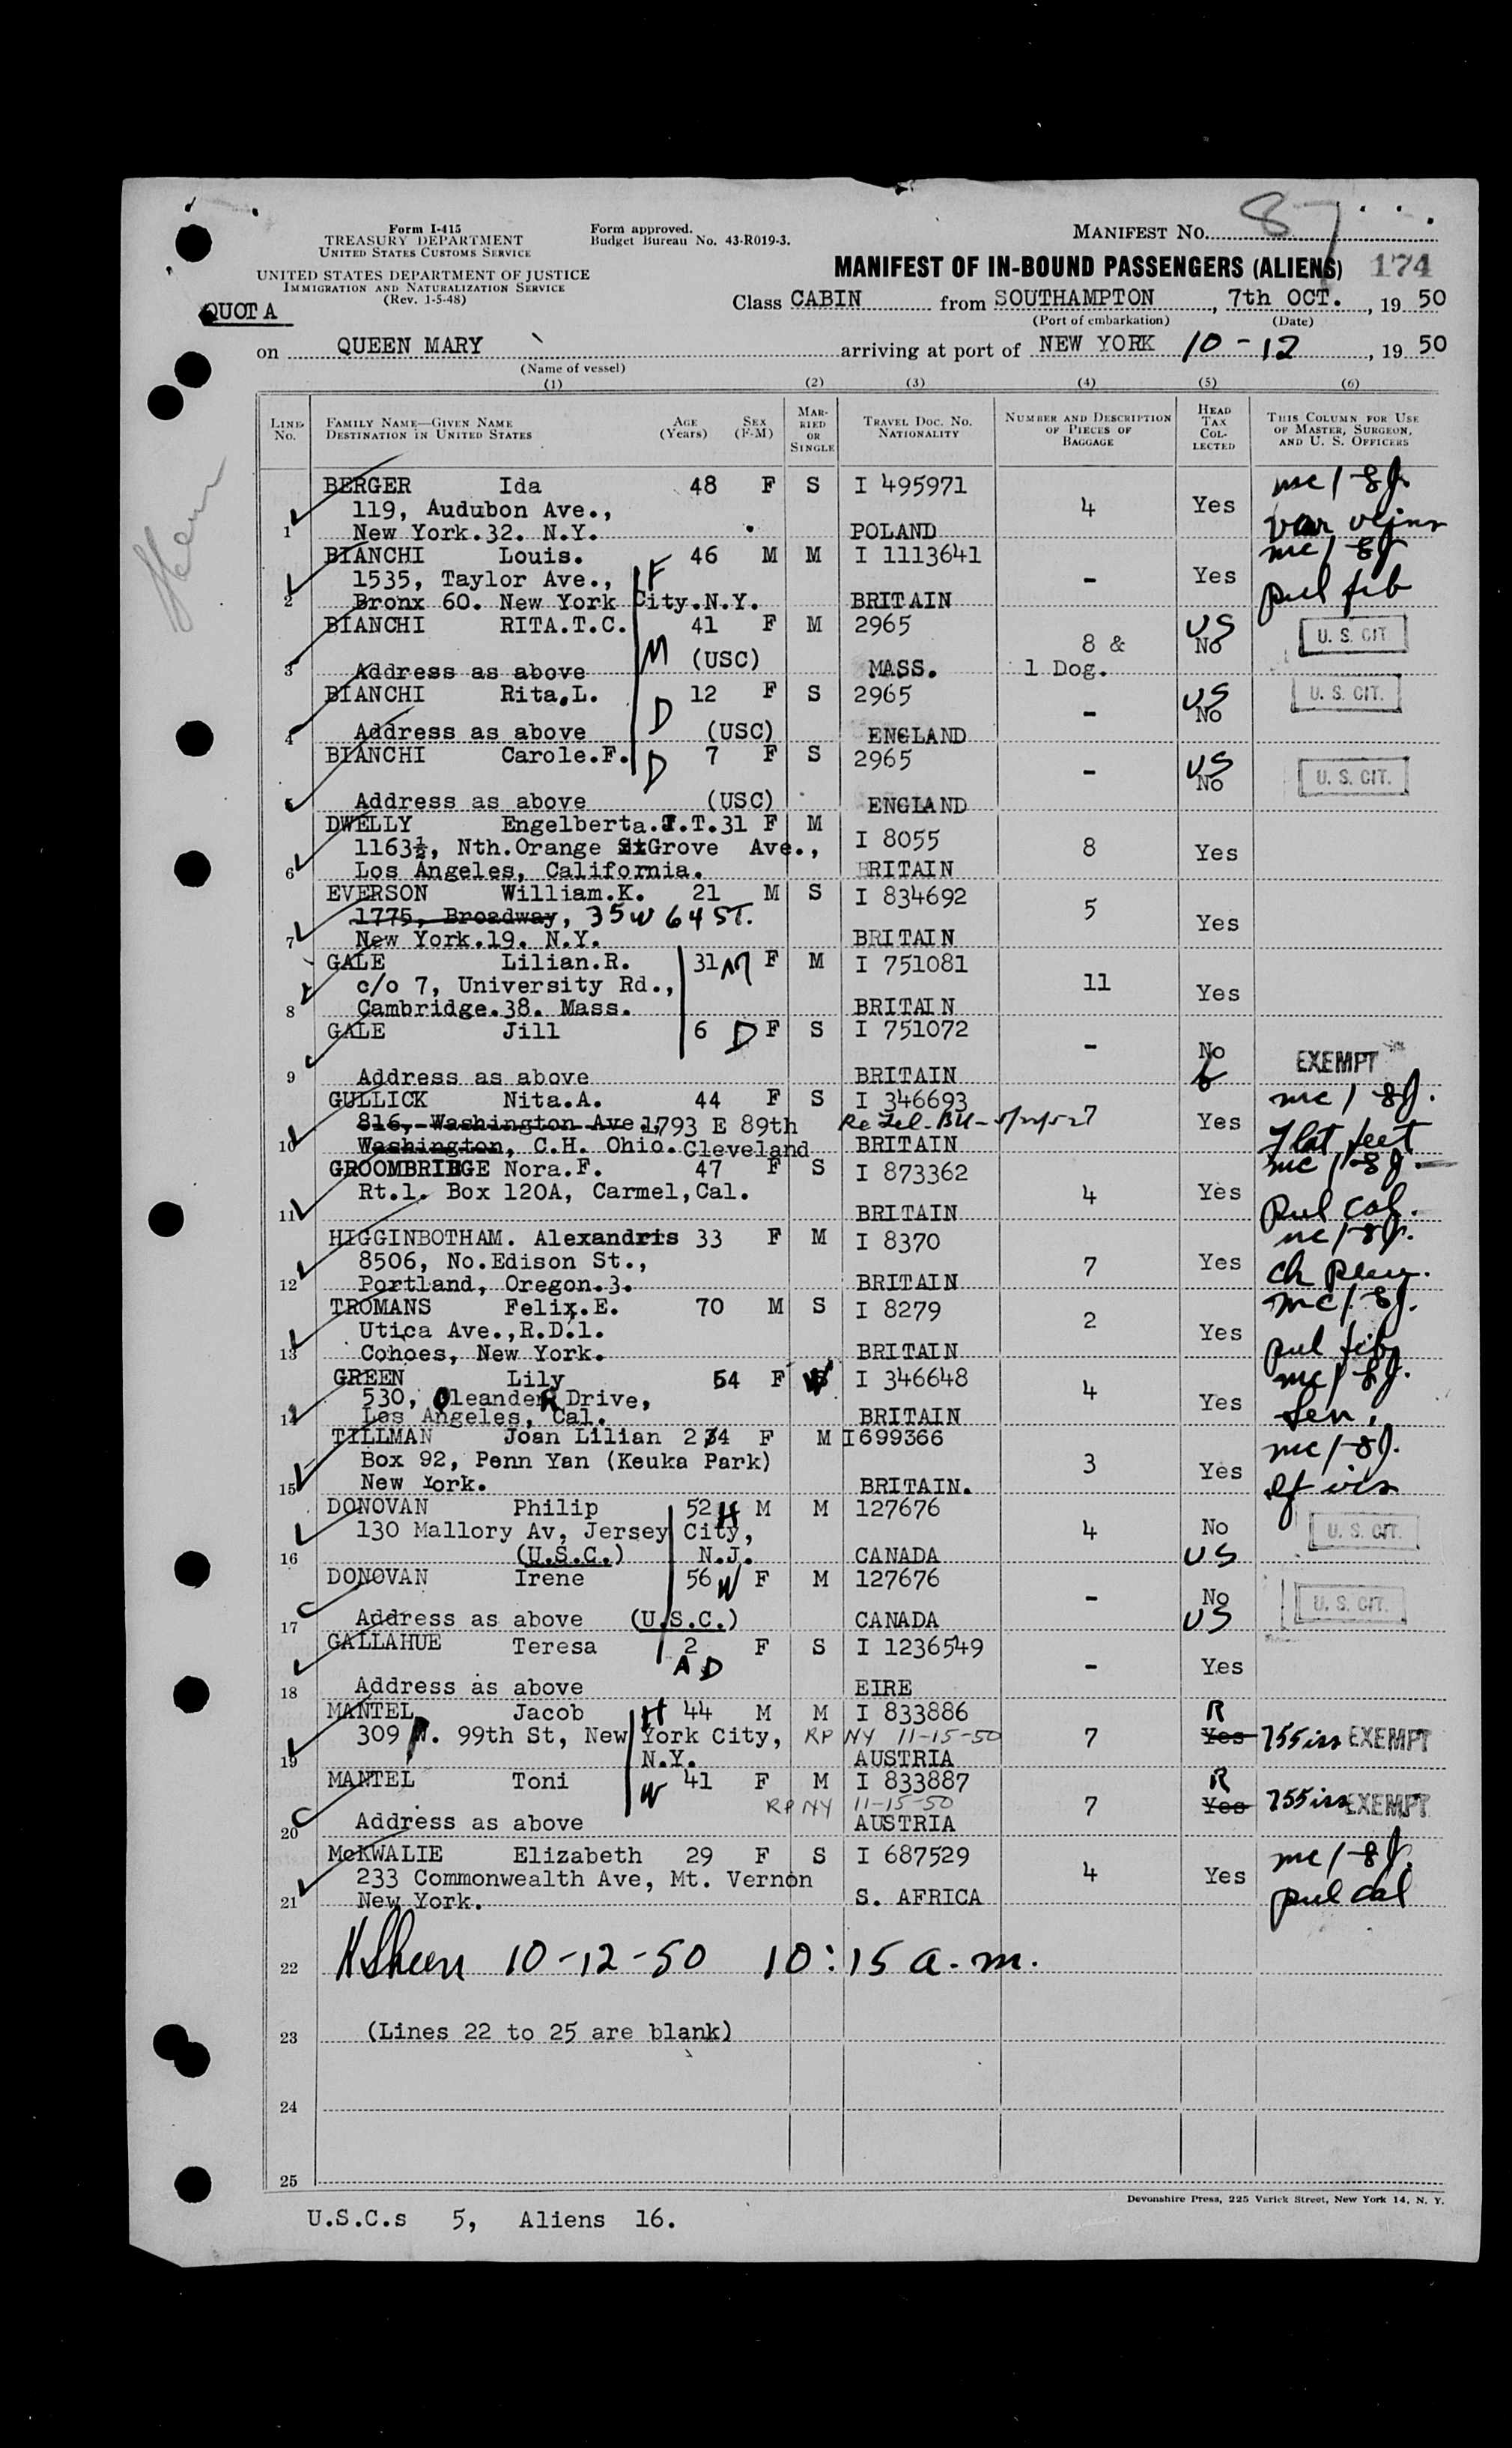 Form I-415
TREASURY DEPARTMENT
UNITED STATES CUSTOMS SERVICE
UNITED STATES DEPARTMENT OF JUSTICE
IMMIGRATION AND NATURALIZATION SERVICE
(Rev. 1-5-48)
Form approved.
Budget Bureau No. 43-R019-3.
MANIFEST NO. 87
MANIFEST OF IN-BOUND PASSENGERS (ALIENS) 174
QUOTA
Class CABIN from SOUTHAMPTON, 7th OCT., 19 50
(Port of embarkation) (Date)
on QUEEN MARY arriving at port of NEW YORK 10-12, 19 50
(Name of vessel)
(1) (2) (3) (4) (5) (6)
LINE NO. FAMILY NAME—GIVEN NAME DESTINATION IN UNITED STATES AGE (Years) SEX (F-M) MARRIED OR SINGLE TRAVEL DOC. NO. NATIONALITY NUMBER AND DESCRIPTION OF PIECES OF BAGGAGE HEAD TAX COLLECTED THIS COLUMN FOR USE OF MASTER, SURGEON, AND U. S. OFFICERS
BERGER Ida 48 F S I 495971
119, Audubon Ave., 4 Yes
1 New York.32. N.Y. POLAND
BIANCHI Louis. 46 M M I 1113641
1535, Taylor Ave., F - Yes
2 Bronx 60. New York City.N.Y. BRITAIN pul fib
BIANCHI RITA.T.C. 41 F M 2965 US U. S. CIT.
M (USC) 8 & No
3 Address as above MASS. 1 Dog.
BIANCHI Rita.L. 12 F S 2965 US U. S. CIT.
D - No
4 Address as above (USC) ENGLAND
BIANCHI Carole.F. D 7 F S 2965 US
- No U. S. CIT.
Address as above (USC) ENGLAND
DWELLY Engelberta.J.T.31 F M
1163½, Nth.Orange Grove Ave., I 8055 8 Yes
6 Los Angeles, California. BRITAIN
EVERSON William.K. 21 M S I 834692
1775, Broadway, 35 W 64 ST. 5 Yes
7 New York.19. N.Y. BRITAIN
GALE Lilian.R. 31 M F M I 751081
c/o 7, University Rd., 11 Yes
8 Cambridge.38. Mass. BRITAIN
GALE Jill 6 D F S I 751072
- No EXEMPT
9 Address as above BRITAIN
GULLICK Nita.A. 44 F S I 346693
816, Washington Ave. 1793 E 89th 7 Yes
10 Washington, C.H. Ohio. Cleveland BRITAIN Flat feet
GROOMBRIDGE Nora.F. 47 F S I 873362
Rt.1. Box 120A, Carmel, Cal. 4 Yes
11 BRITAIN
HIGGINBOTHAM. Alexandris 33 F M I 8370
8506, No.Edison St., 7 Yes
12 Portland, Oregon.3. BRITAIN
TROMANS Felix.E. 70 M S I 8279
Utica Ave.,R.D.1. 2 Yes
13 Cohoes, New York. BRITAIN pul fib
GREEN Lily 54 F I 346648
530, OleandeR Drive, 4 Yes
14 Los Angeles, Cal. BRITAIN
TILLMAN Joan Lilian 24 F M I 699366
Box 92, Penn Yan (Keuka Park) 3 Yes
15 New York. BRITAIN.
DONOVAN Philip 52 H M M 127676
130 Mallory Av, Jersey City, 4 No U. S. CIT.
16 (U.S.C.) N.J. CANADA US
DONOVAN Irene 56 W F M 127676
- No U. S. CIT.
17 Address as above (U.S.C.) CANADA US
GALLAHUE Teresa 2 F S I 1236549
A D - Yes
18 Address as above EIRE
MANTEL Jacob H 44 M M I 833886 R
309 W. 99th St, New York City, RP NY 11-15-50 7 Yes EXEMPT
19 N.Y. AUSTRIA
MANTEL Toni W 41 F M I 833887 R
RP NY 11-15-50 7 Yes EXEMPT
20 Address as above AUSTRIA
McKWALIE Elizabeth 29 F S I 687529
233 Commonwealth Ave, Mt. Vernon 4 Yes
21 New York. S. AFRICA
22 10-12-50 10:15 a.m.
23 (Lines 22 to 25 are blank)
24
25
Devonshire Press, 225 Varick Street, New York 14, N. Y.
U.S.C.s 5, Aliens 16.